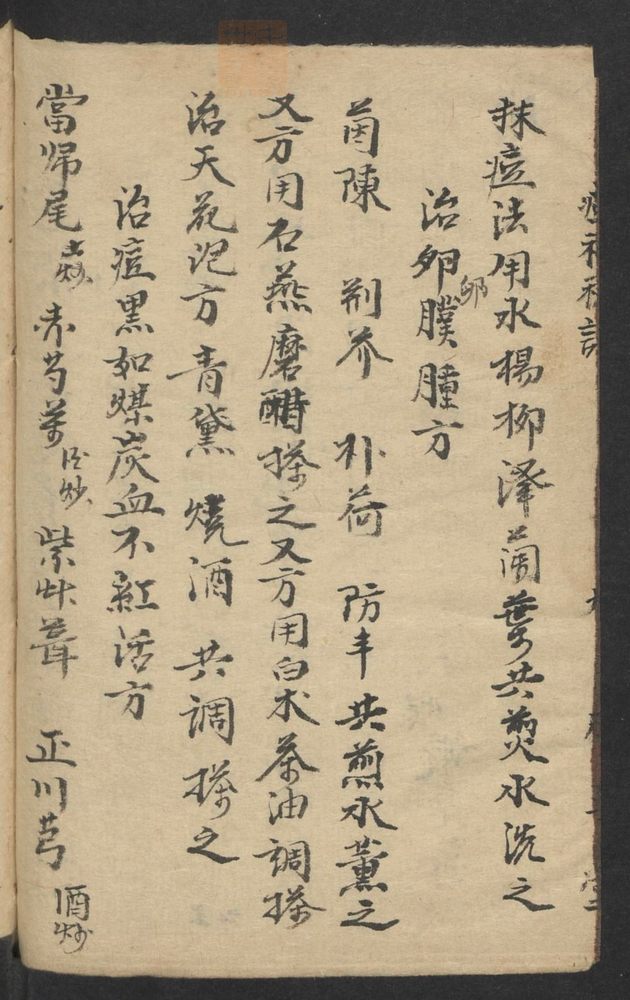 抹痘法用水楊柳澤蘭葉共煎水洗之
治卵膜腫方
卵
茵陳 荆芥 朴荷 防丰共煎水薰之
又方用石燕磨醋搽之又方用白术茶油調搽
治天花泡方青黛 燒酒 共調搽之
治痘黑如煤炭血不紅活方
當歸尾 土炒 赤芍葯 酒炒 紫草茸 正川芎 酒炒